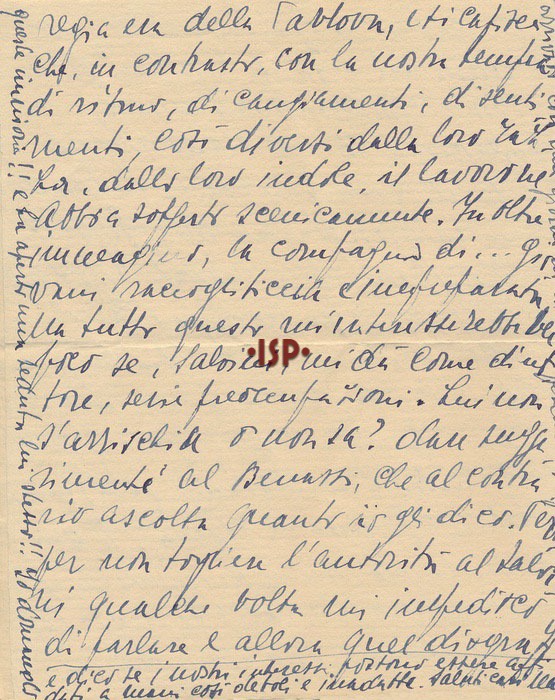 regia era della Pavlova, si capisce
che, in contrasto, con la nostra tempra
di ritmo, di cangiamenti, di senti
menti, così diversi dalla loro
dalla loro indole, il lavoro ne
Abbia sofferto scenicamente. Inoltre
immagino, la compagnia di... gio
vani raccogliticcia e impreparata
Ma tutto questo mi interesserebbe
poco se, Salvini mi dà come diret
tore, serie preoccupazioni. Lui non
s'arrischia o non sa? dare sugge
rimenti al Benassi, che al contra
rio ascolta quanto io gli dico.
per non togliere l'autorità al Salvi
ni qualche volta mi impedisco
di parlare e allora
e dico se i nostri interessi possono essere affi
dati a mani così deboli e
ISP
questa in
!! e ha aperto una seduta lui stesso!! Io domando